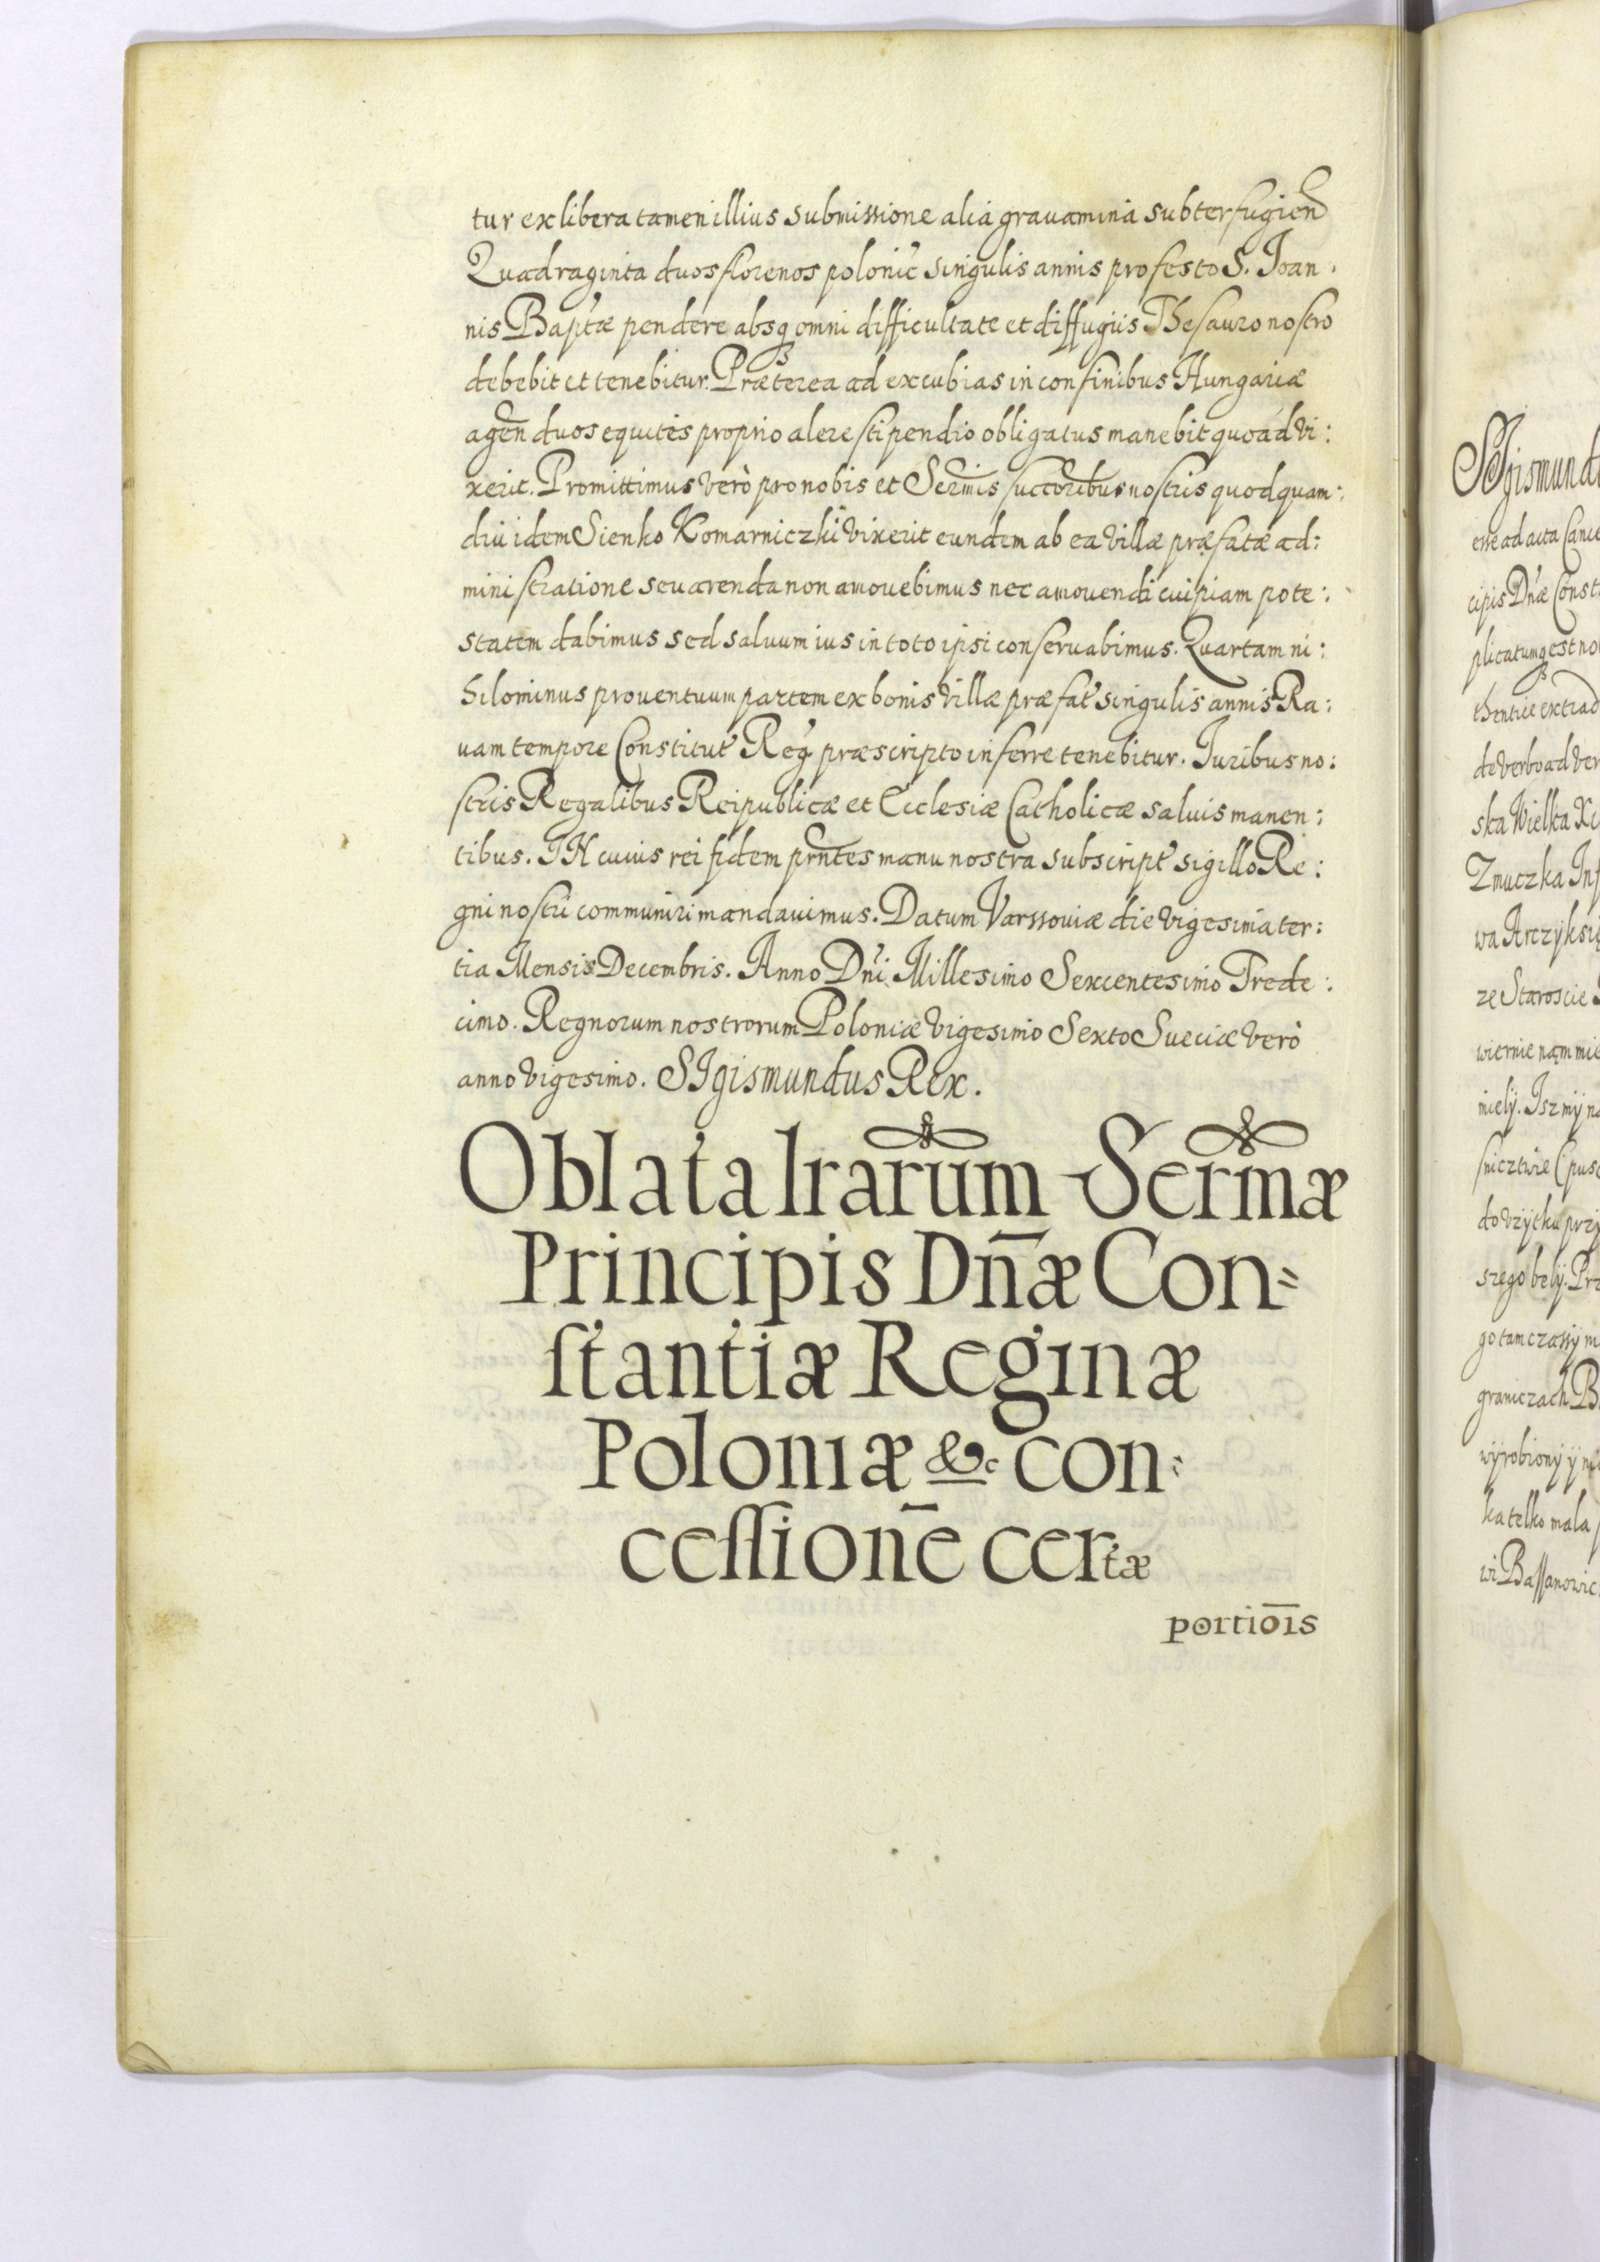 tur ex libera tamen illius submissione alia grauamina subterfugien̄
Quadraginta duos florenos polonic̄ singulis annis pro festo S. Joan:
nis Bap̄tæ pendere absq̢ omni difficultate et diffugijs Thesauro nostro
debebit et tenebitur. Præterea ad excubias in confinibus Hungariæ
agen̄ duos equites proprio alere stipendio obligatus manebit quoad vi:
xerit. Promittimus verò pro nobis et Serm̄is succōribus nostris quod quam:
diu idem Sienko Komarniczki vixerit eundem ab ea villæ præfatæ ad:
ministratione seu arenda non amouebimus nec amouendi cuipiam pote:
statem dabimus sed saluum ius in toto ipsi conseruabimus. Quartam ni:
hilominus prouentuum partem ex bonis villæ præfat̄ singulis annis Ra:
uam tempore Constitut̄ Reḡ præscripto inferre tenebitur. Iuribus no:
stris Regalibus Reipublicæ et Ecclesiæ Catholicæ saluis manen:
tibus. IN cuius rei fidem prn̄tes manu nostra subscript̄ sigillo Re:
gni nostri communiri mandauimus. Datum Varssouiæ die vigesima ter:
tia Mensis Decembris. Anno Dn̄i Millesimo Sexcentesimo Trede:
cimo. Regnorum nostrorum Poloniæ vigesimo Sexto Sueciæ verò
anno vigesimo. SIgismundus Rex.
Oblata lrarūm Serm̄æ
Principis Dn̄æ Con=
stantiæ Reginæ
Poloniæ &c con:
cessionē certæ
portiōis
SIgismund
esse ad acta Cance
cipis Dn̄æ Const
plicatumq̢ est no
thentice extrad
de verbo ad ver
ska Wielka Xi
Zmuczka Inf
wa Arczyksię
ze Staroscie
wiernie nąm mie
mielÿ. Isz mÿ na
snicztwie (pusc
do vzÿtku przÿ
szego belÿ. Prz
go tam czassÿ m
graniczach B
wÿrobionÿ ÿ na
ka telko mala
wi Bassanowic